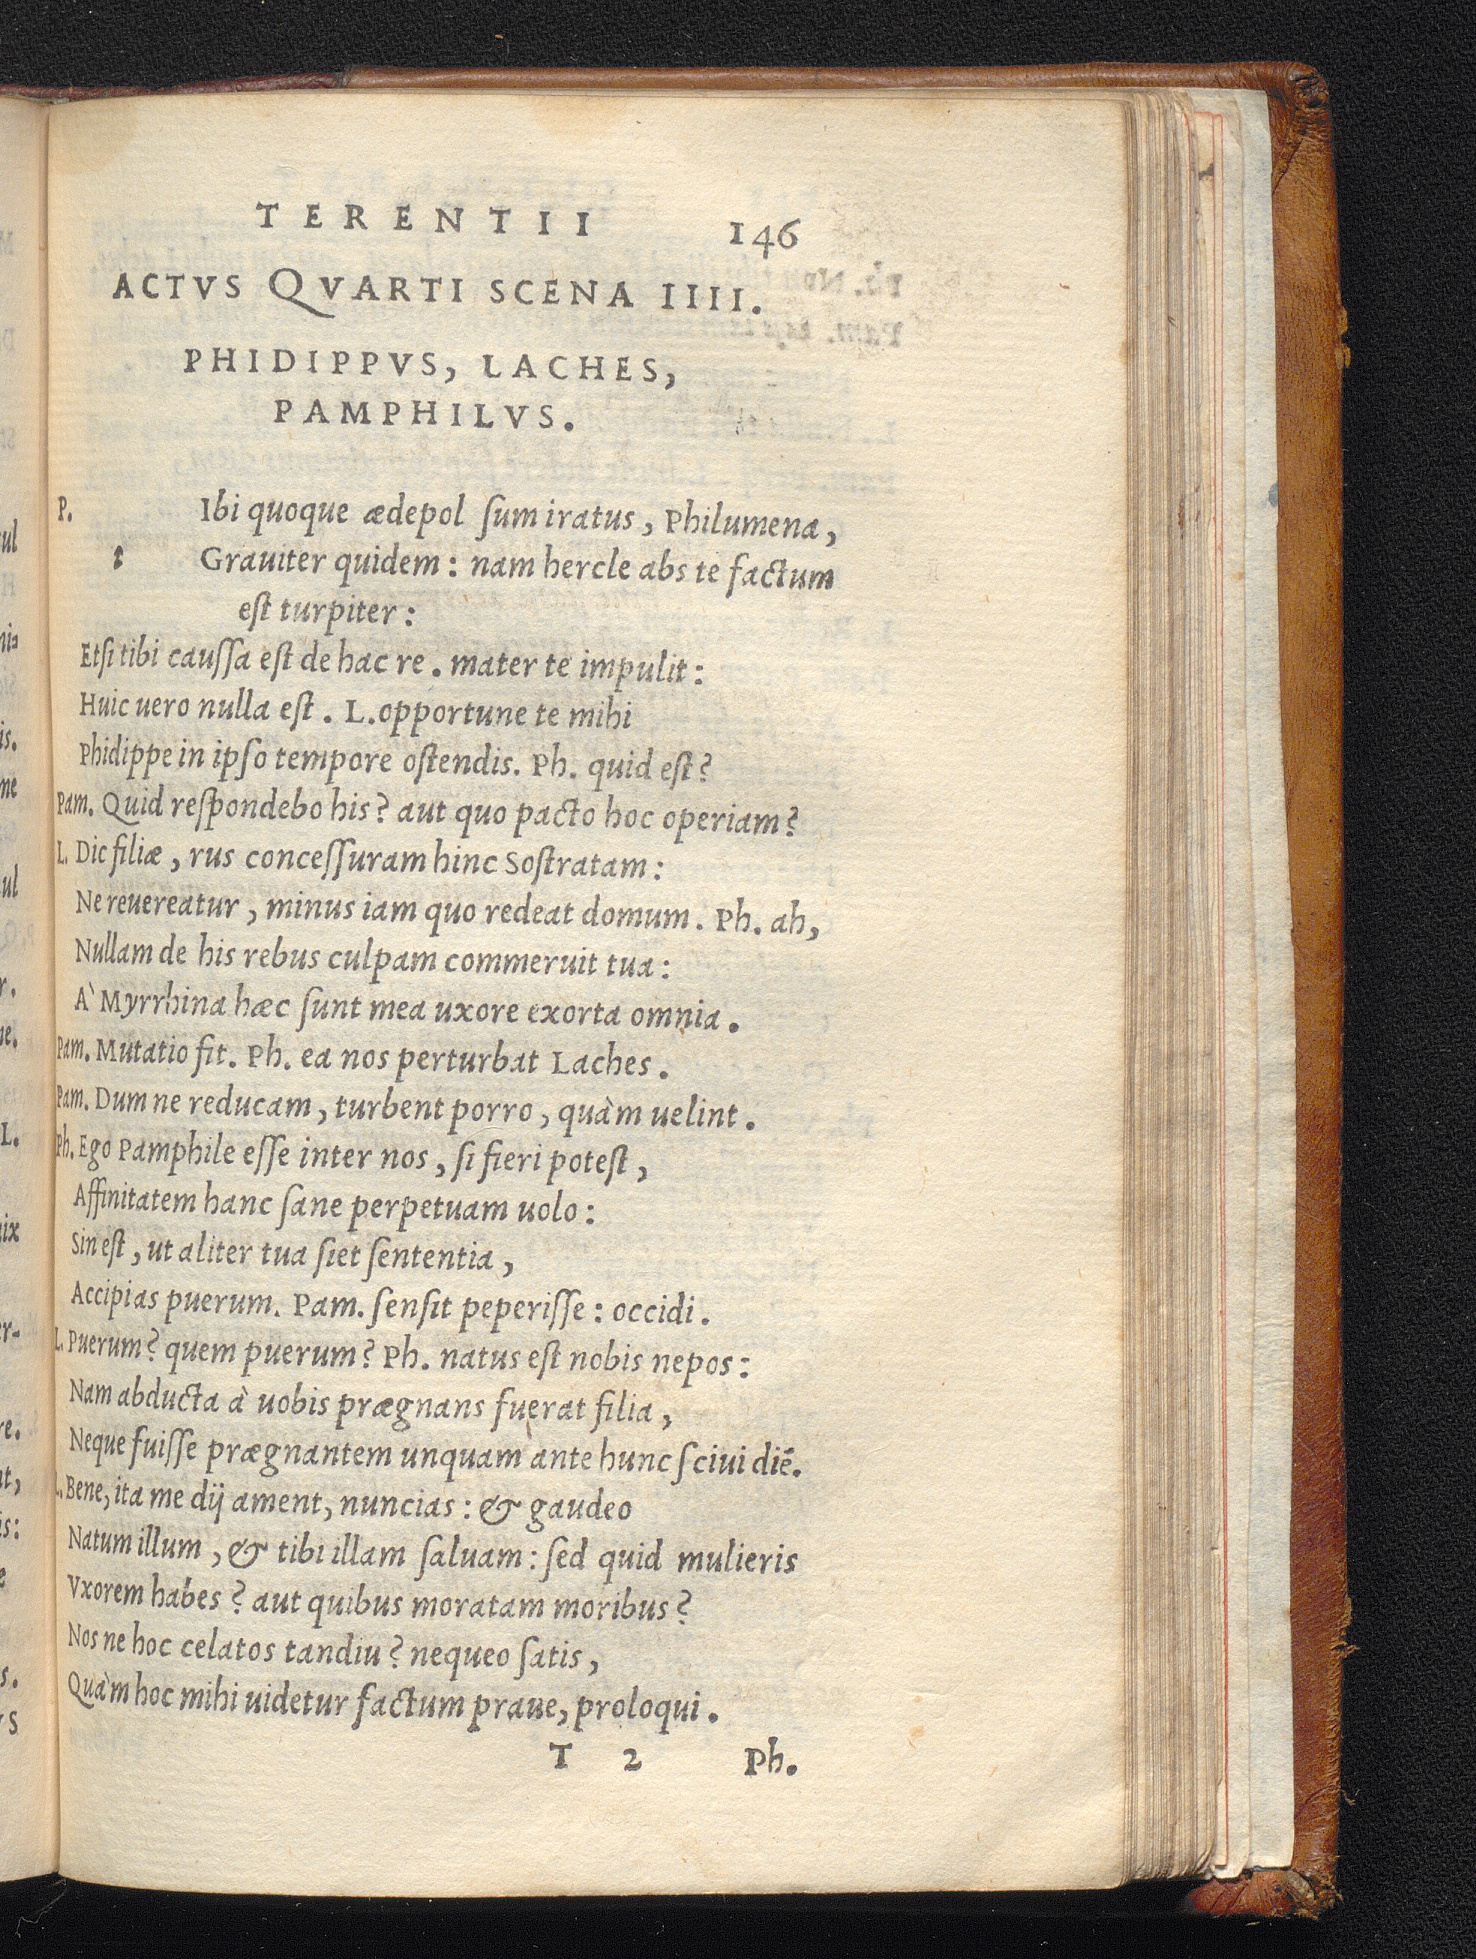 TERENTII 146
ACTVS QVARTI SCENA IIII.
PHIDIPPVS, LACHES,
PAMPHILVS.
P. Ibi quoque ædepol ſum iratus, Philumena,
t Grauiter quidem: nam hercle abs te factum
eſt turpiter:
Etſi tibi cauſſa eſt de hac re. mater te impulit:
Huic uero nulla eſt. L.opportune te mihi
Phidippe in ipſo tempore oſtendis. Ph. quid eſt?
Pam. Quid reſpondebo his? aut quo pacto hoc operiam?
L. Dic filiæ, rus conceſſuram hinc Soſtratam:
Ne reuereatur, minus iam quo redeat domum. Ph. ah,
Nullam de his rebus culpam commeruit tua:
A` Myrrhina hæc ſunt mea uxore exorta omnia.
Pam. Mutatio fit. Ph. ea nos perturbat Laches.
Pam. Dum ne reducam, turbent porro, quàm uelint.
Ph. Ego Pamphile eſſe inter nos, ſi fieri poteſt,
Affinitatem hanc ſane perpetuam uolo:
Sin eſt, ut aliter tua ſiet ſententia,
Accipias puerum. Pam. ſenſit peperiſſe: occidi.
L. Puerum? quem puerum? Ph. natus eſt nobis nepos:
Nam abducta à uobis prægnans fuerat filia,
Neque fuiſſe prægnantem unquam ante hunc ſciui diē.
L. Bene, ita me dij ament, nuncias: & gaudeo
Natum illum, & tibi illam ſaluam: ſed quid mulieris
Vxorem habes? aut quibus moratam moribus?
Nos ne hoc celatos tandiu? nequeo ſatis,
Quàm hoc mihi uidetur factum praue, proloqui.
T 2 Ph.